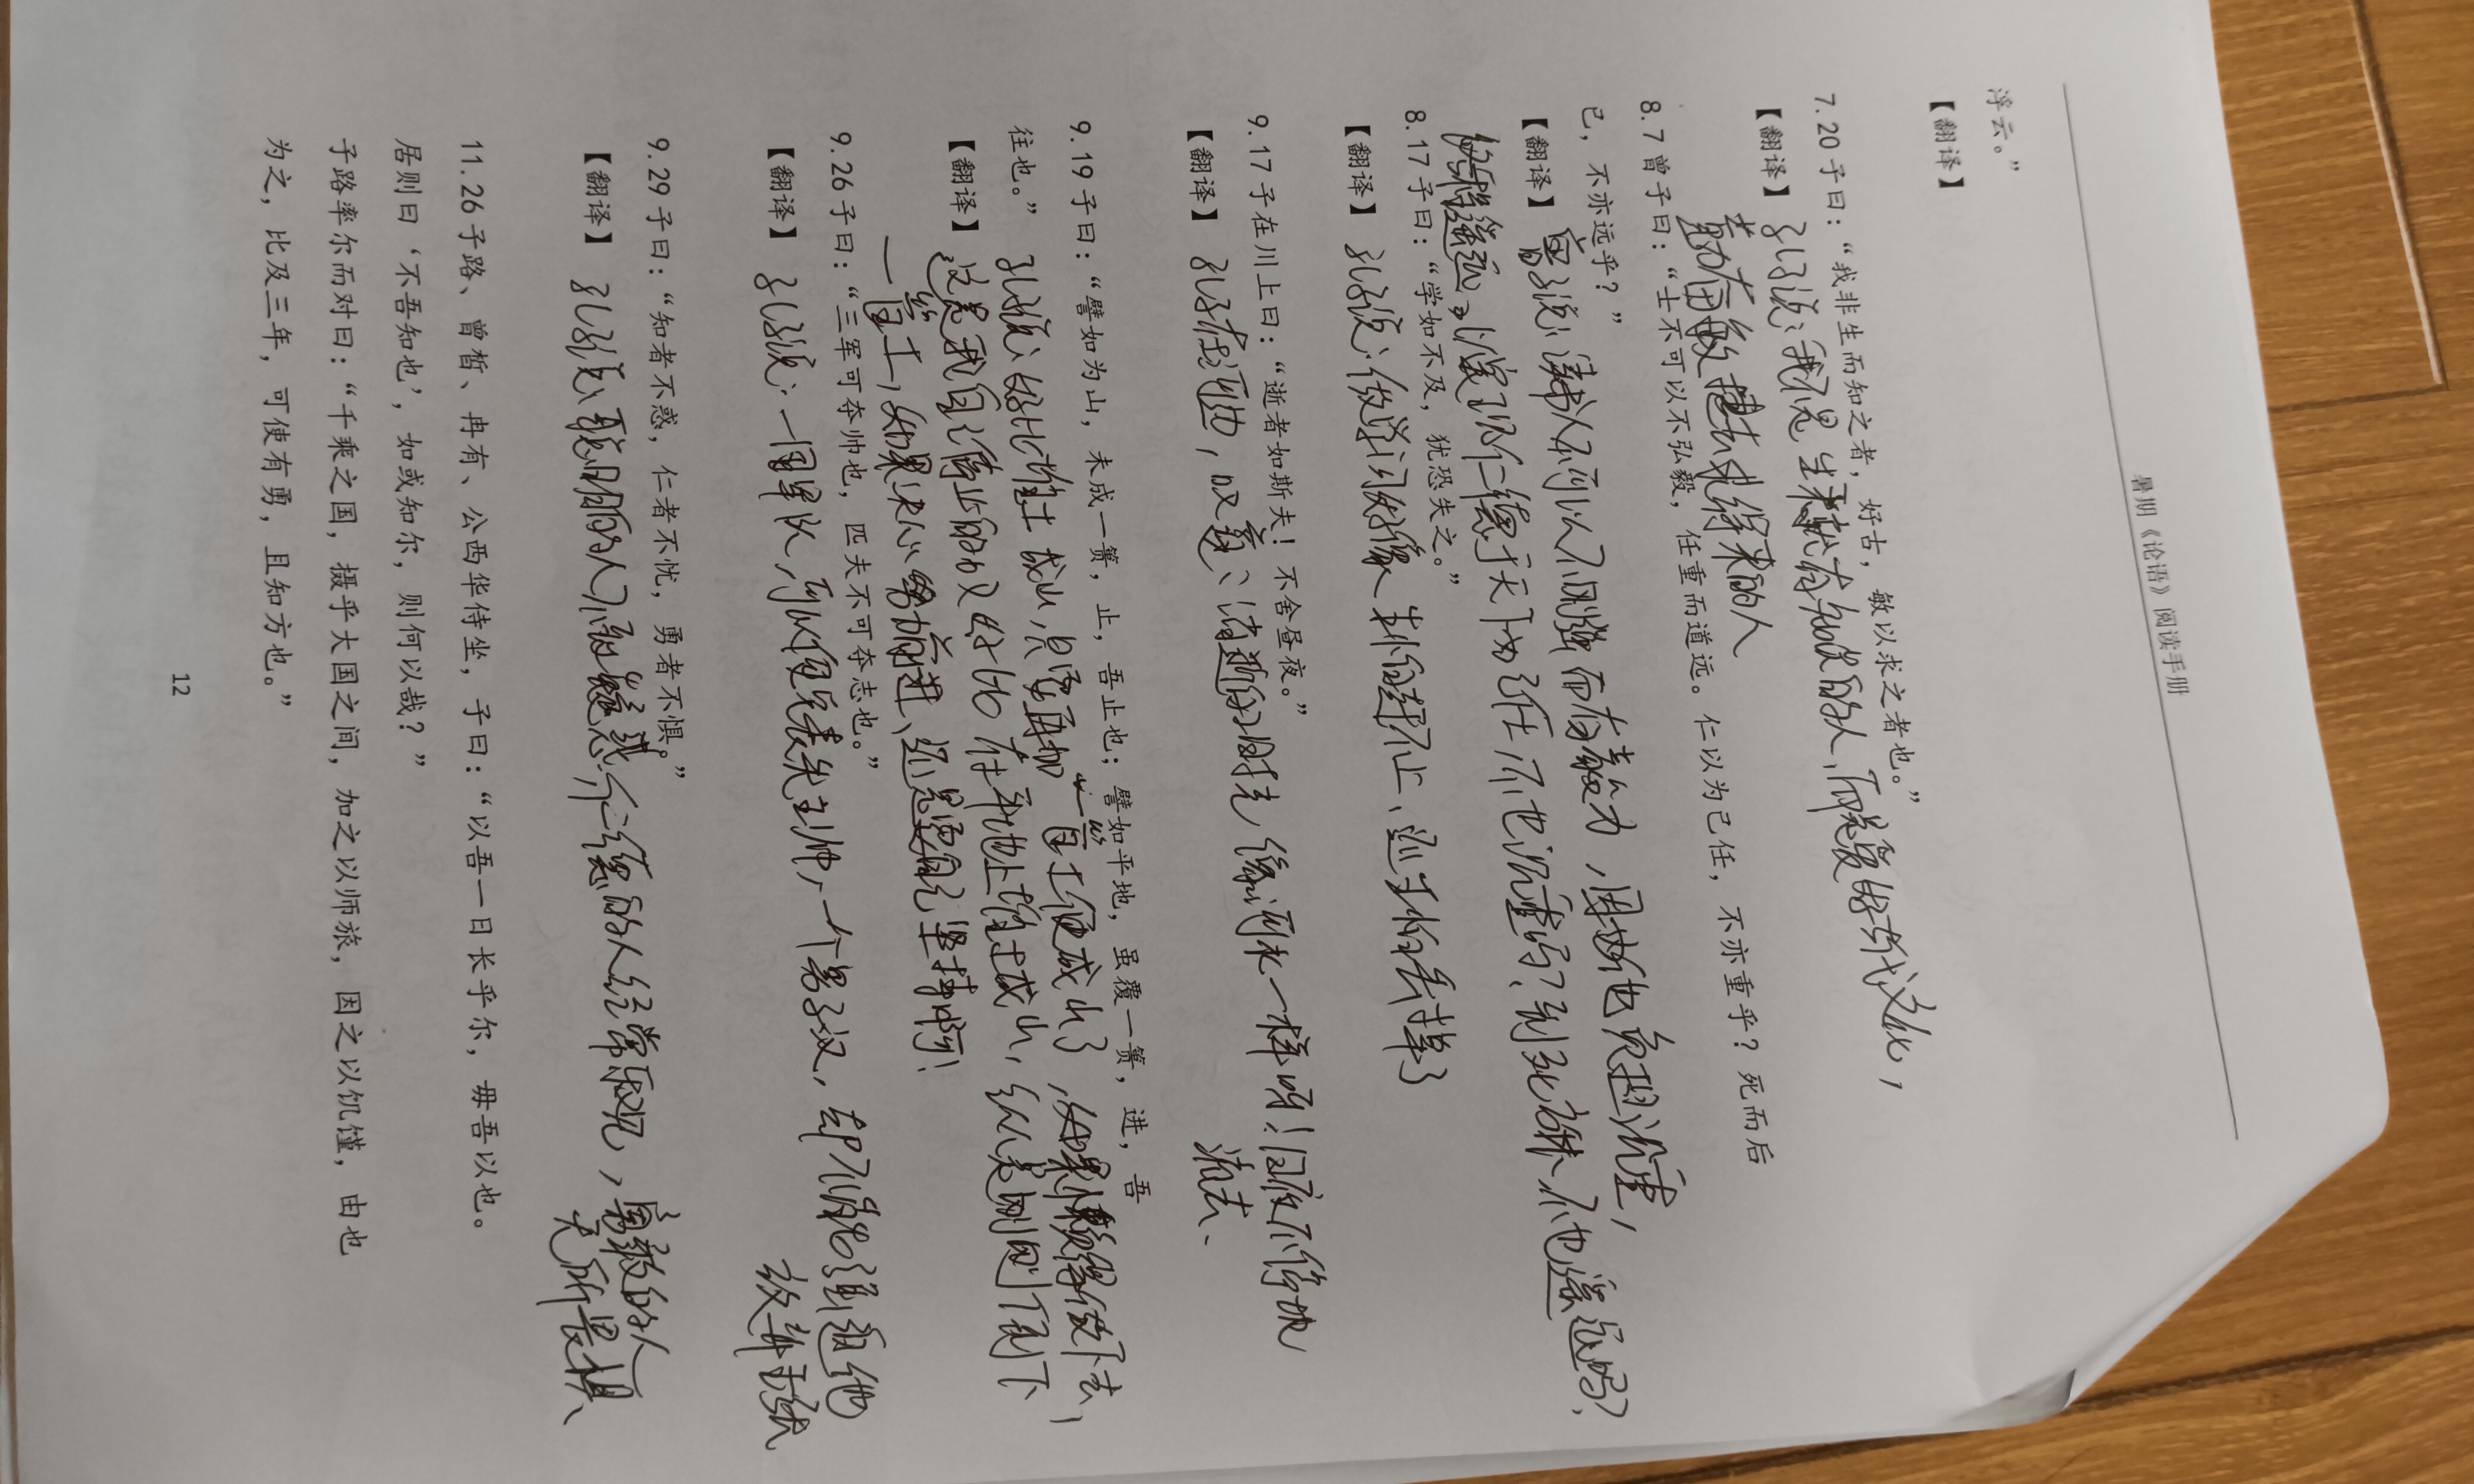 暑期《论语》阅读手册
浮云。”
【翻译】
7.20 子曰：“我非生而知之者，好古，敏以求之者也。”
【翻译】孔子说：我不是生来就有知识的人，而是爱好古代文化，
勤奋敏捷去求得来的人
8.7 曾子曰：“士不可以不弘毅，任重而道远。仁以为己任，不亦重乎？死而后
已，不亦远乎？”
【翻译】曾子说：读书人不可以不刚强而有毅力，因为他负担沉重，
路程遥远，以实现仁德于天下为己任，不也沉重吗？到死方休，不也遥远吗？
8.17 子曰：“学如不及，犹恐失之。”
【翻译】孔子说：做学问好像，赶不上，赶上了怕丢掉了
9.17 子在川上曰：“逝者如斯夫！不舍昼夜。”
【翻译】孔子在河边，叹道：消逝的时光像河水一样啊！日夜不停地
流去、
9.19 子曰：“譬如为山，未成一篑，止，吾止也；譬如平地，虽覆一篑，进，吾
往也。”
【翻译】孔子说：好比堆土成山，只需再加一筐土便成山了，如果懒得做下去，
这是我自己停止的。又好比在平地上堆土成山，纵是刚刚倒下
一筐土，如果决心努力前进，还是要自己坚持啊！
9.26 子曰：“三军可夺帅也，匹夫不可夺志也。”
【翻译】孔子说：一国军队，可以使它丧失主帅，一个男子汉，却不能强迫他
放弃
9.29 子曰：“知者不惑，仁者不忧，勇者不惧。”
【翻译】孔子说：聪明的人不致疑惑，仁德的人经常乐观，勇敢的人
无所畏惧、
11.26 子路、曾皙、冉有、公西华侍坐，子曰：“以吾一日长乎尔，毋吾以也。
居则曰‘不吾知也’，如或知尔，则何以哉？”
子路率尔而对曰：“千乘之国，摄乎大国之间，加之以师旅，因之以饥馑，由也
为之，比及三年，可使有勇，且知方也。”
12